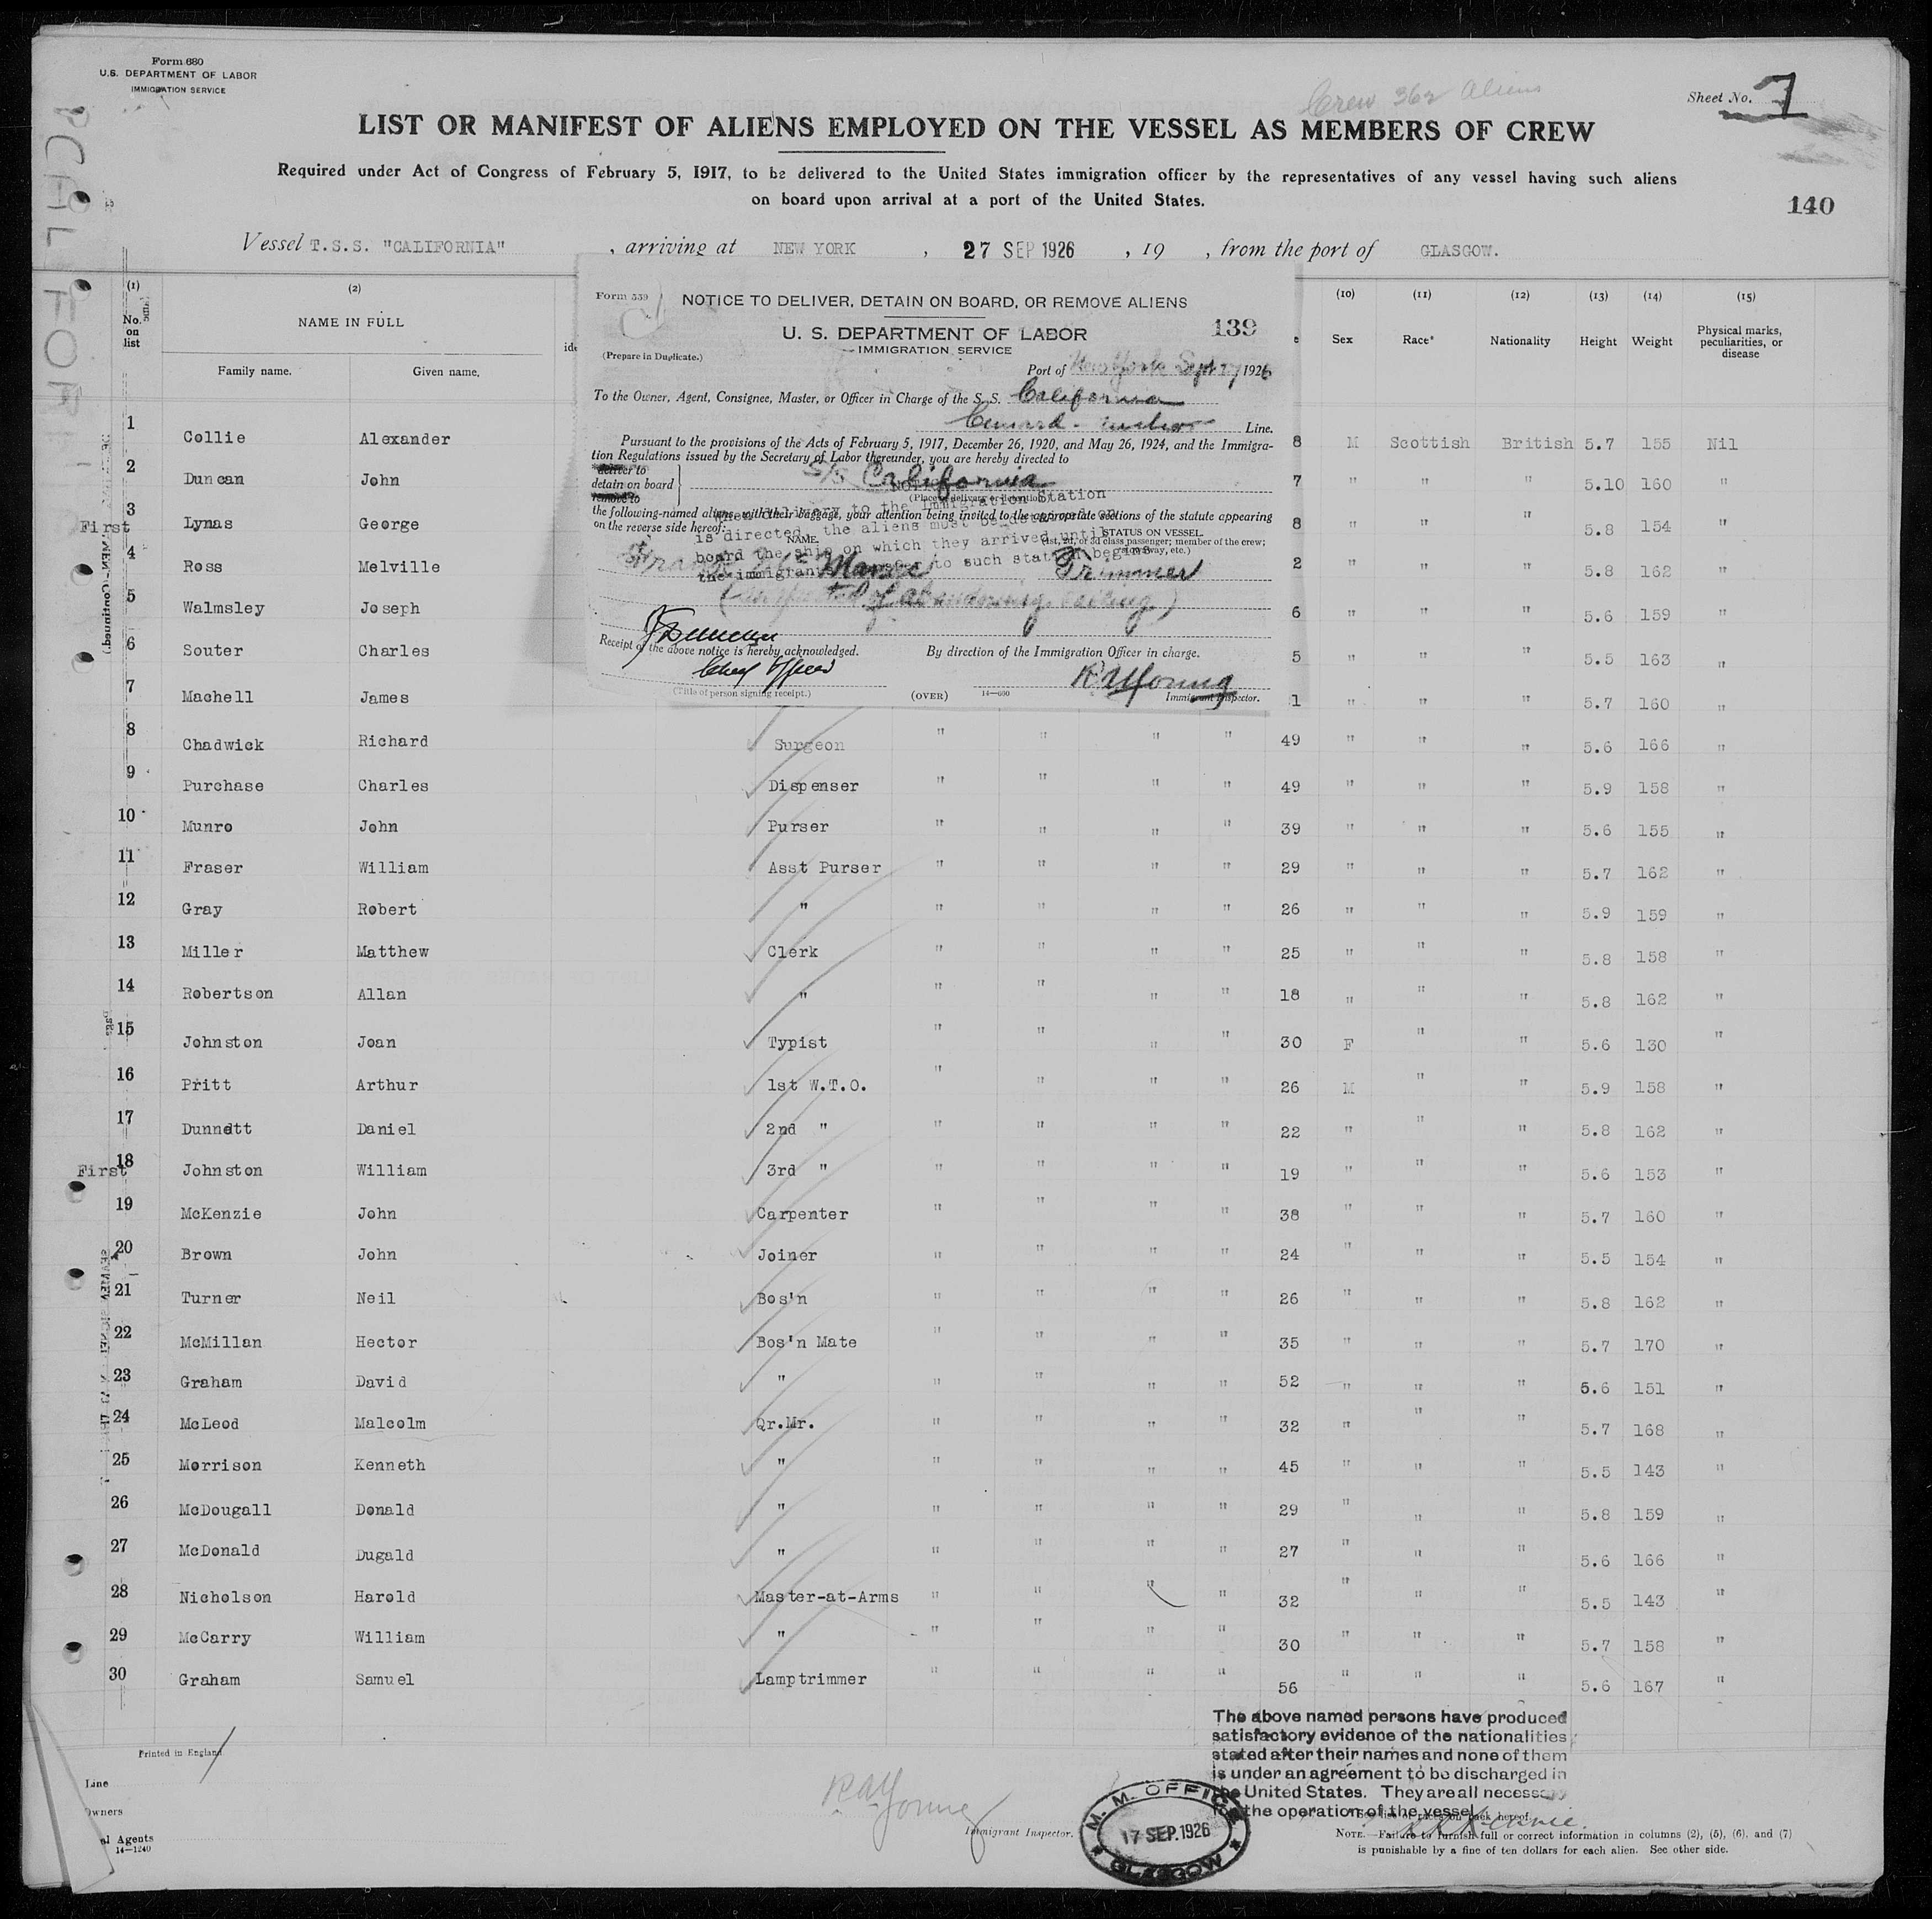 Form 680
U.S. DEPARTMENT OF LABOR
IMMIGRATION SERVICE
Crew 362 Aliens
Sheet No. 7
LIST OR MANIFEST OF ALIENS EMPLOYED ON THE VESSEL AS MEMBERS OF CREW
Required under Act of Congress of February 5, 1917, to be delivered to the United States immigration officer by the representatives of any vessel having such aliens
on board upon arrival at a port of the United States.
140
Vessel T.S.S. "CALIFORNIA" , arriving at NEW YORK , 27 SEP 1926 , 19 , from the port of GLASGOW.
(1) (2) (10) (11) (12) (13) (14) (15)
No. on list NAME IN FULL Sex Race* Nationality Height Weight Physical marks, peculiarities, or disease
Family name. Given name.
Form 539
NOTICE TO DELIVER, DETAIN ON BOARD, OR REMOVE ALIENS
U. S. DEPARTMENT OF LABOR 139
IMMIGRATION SERVICE
(Prepare in Duplicate.)
Port of New York Sept 27 1926
To the Owner, Agent, Consignee, Master, or Officer in Charge of the S. S. California
Cunard - Anchor Line.
Pursuant to the provisions of the Acts of February 5, 1917, December 26, 1920, and May 26, 1924, and the Immigra-
tion Regulations issued by the Secretary of Labor thereunder, you are hereby directed to
deliver to
detain on board S/S California
remove to
(Place of delivery or detention)
the following-named aliens, with their baggage, your attention being invited to the appropriate sections of the statute appearing
on the reverse side hereof:
When delivery to the Immigration Station
is directed, the aliens must be detained on
board the ship on which they arrived until
the immigrants to such station begins
NAME. STATUS ON VESSEL.
(1st, 2d, or 3d class passenger; member of the crew; stowaway, etc.)
Trimmer
Receipt of the above notice is hereby acknowledged. By direction of the Immigration Officer in charge.
Chief Officer R A Young
(Title of person signing receipt.) (OVER) 14—660 Immigrant Inspector.
1 Collie Alexander 8 M Scottish British 5.7 155 Nil
2 Duncan John 7 " " " 5.10 160 "
First 3 Lynas George 8 " " " 5.8 154 "
4 Ross Melville 2 " " " 5.8 162 "
5 Walmsley Joseph 6 " " " 5.6 159 "
6 Souter Charles 5 " " " 5.5 163 "
7 Machell James 1 " " " 5.7 160 "
8 Chadwick Richard Surgeon " " " " 49 " " " 5.6 166 "
9 Purchase Charles Dispenser " " " " 49 " " " 5.9 158 "
10 Munro John Purser " " " " 39 " " " 5.6 155 "
11 Fraser William Asst Purser " " " " 29 " " " 5.7 162 "
12 Gray Robert " " " " " 26 " " " 5.9 159 "
13 Miller Matthew Clerk " " " " 25 " " " 5.8 158 "
14 Robertson Allan " " " " " 18 " " " 5.8 162 "
15 Johnston Joan Typist " " " " 30 F " " 5.6 130 "
16 Pritt Arthur 1st W.T.O. " " " " 26 M " " 5.9 158 "
17 Dunnett Daniel 2nd " " " " " 22 " " " 5.8 162 "
First 18 Johnston William 3rd " " " " " 19 " " " 5.6 153 "
19 McKenzie John Carpenter " " " " 38 " " " 5.7 160 "
20 Brown John Joiner " " " " 24 " " " 5.5 154 "
21 Turner Neil Bos'n " " " " 26 " " " 5.8 162 "
22 McMillan Hector Bos'n Mate " " " " 35 " " " 5.7 170 "
23 Graham David " " " " " 52 " " " 5.6 151 "
24 McLeod Malcolm Qr.Mr. " " " " 32 " " " 5.7 168 "
25 Morrison Kenneth " " " " " 45 " " " 5.5 143 "
26 McDougall Donald " " " " " 29 " " " 5.8 159 "
27 McDonald Dugald " " " " " 27 " " " 5.6 166 "
28 Nicholson Harold Master-at-Arms " " " " 32 " " " 5.5 143 "
29 McCarry William " " " " " 30 " " " 5.7 158 "
30 Graham Samuel Lamptrimmer " " " " 56 " " " 5.6 167 "
The above named persons have produced
satisfactory evidence of the nationalities
stated after their names and none of them
is under an agreement to be discharged in
the United States. They are all necessary
for the operation of the vessel
Printed in England
Line
Owners
Agents
14—1240
R A Young
Immigrant Inspector.
M. M. OFFICE
17 SEP. 1926
GLASGOW
* See list of races on back hereof.
NOTE.—Failure to furnish full or correct information in columns (2), (5), (6), and (7)
is punishable by a fine of ten dollars for each alien. See other side.